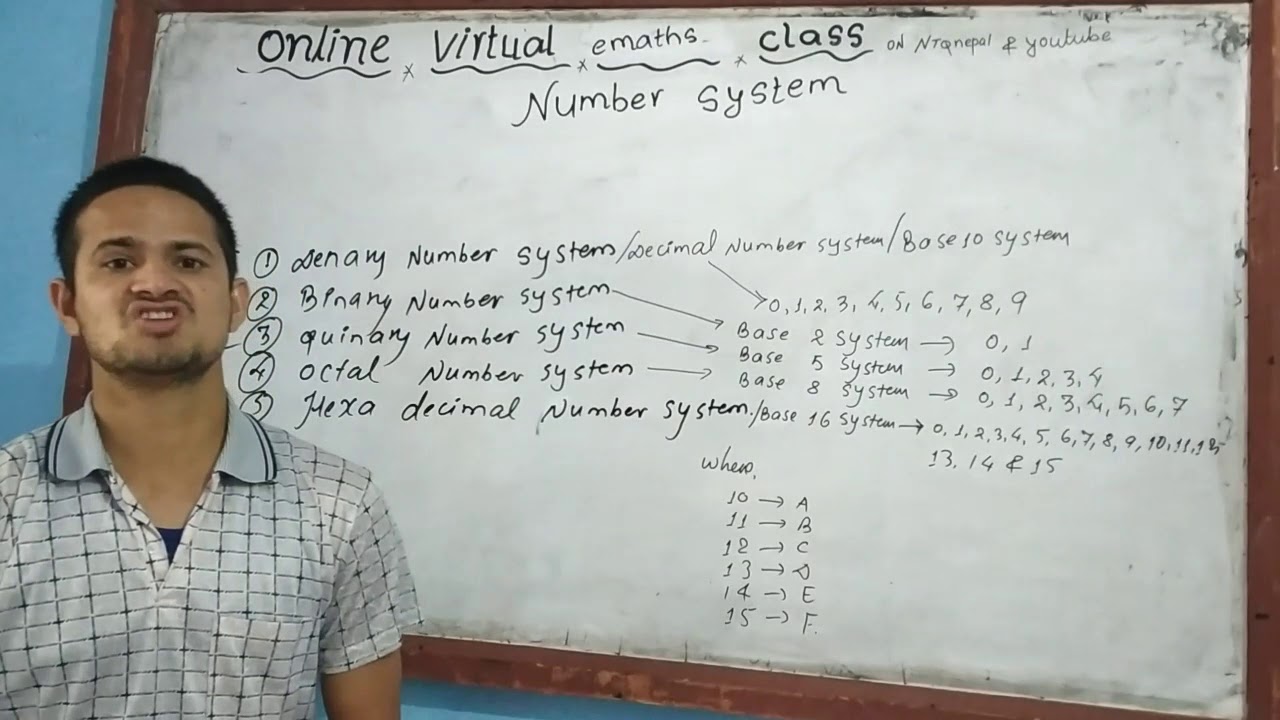 Online × Virtual × emaths × class on NTQnepal & youtube
Number system
① Denary Number system/Decimal Number system/Base 10 system
0, 1, 2, 3, 4, 5, 6, 7, 8, 9
② Binary Number system → Base 2 system → 0, 1
③ quinary Number system → Base 5 system → 0, 1, 2, 3, 4
④ octal Number system → Base 8 system → 0, 1, 2, 3, 4, 5, 6, 7
⑤ Hexa decimal Number system/Base 16 system → 0, 1, 2, 3, 4, 5, 6, 7, 8, 9, 10, 11, 12,
13, 14 & 15
where,
10 → A
11 → B
12 → C
13 → D
14 → E
15 → F.